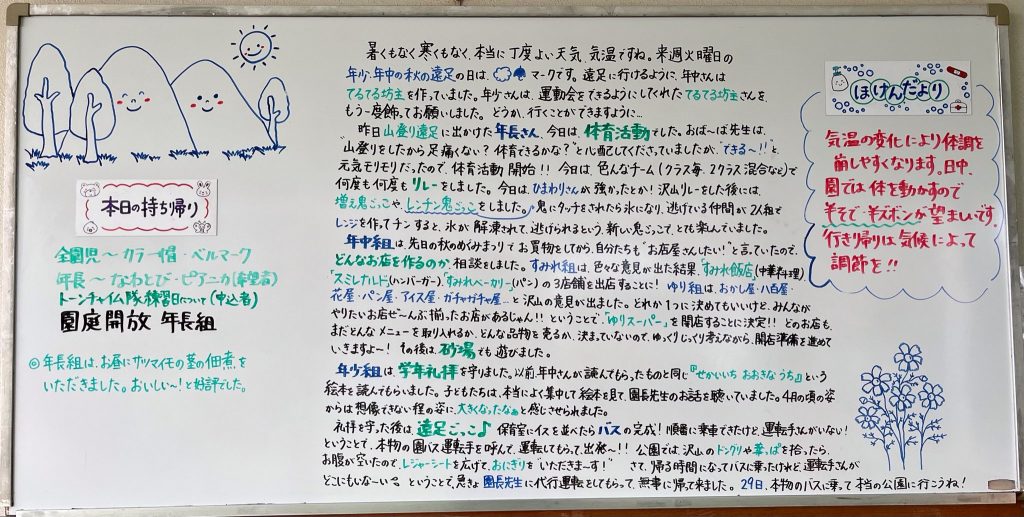 本日の持ち帰り
全園児～カラー帽・ベルマーク
年長～なわとび・ピアニカ(希望者)
トーンチャイム隊練習日について(申込者)
園庭開放 年長組
◎年長組は、お昼にサツマイモの茎の佃煮を
いただきました。おいしい～!と好評でした。
暑くもなく寒くもなく、本当に丁度よい天気、気温ですね。来週火曜日の
年少、年中の秋の遠足の日は、マークです。遠足に行けるように、年中さんは
てるてる坊主を作っていました。年少さんは、運動会をできるようにしてくれたてるてる坊主さんを、
もう一度飾ってお願いしました。どうか、行くことができますように…
昨日山登り遠足に出かけた年長さん、今日は、体育活動でした。おば～ば先生は、
"山登りをしたから足痛くない?体育できるかな?"と心配してくださっていましたが、"できる～!!"と
元気モリモリだったので、体育活動開始!!今日は、色んなチーム(クラス毎、2クラス混合など)で
何度も何度もリレーをしました。今日は、ひまわりさんが強かったとか!沢山リレーをした後には、
増え鬼ごっこや、レンチン鬼ごっこをしました。鬼にタッチをされたら氷になり、逃げている仲間が2人組で
レンジを作ってチンすると、氷が解凍されて、逃げられるという、新しい鬼ごっこで、とても楽しんでいました。
年中組は、先日の秋のめぐみまつりでお買物をしてから、自分たちも"お店屋さんしたい!"と言っていたので、
どんなお店を作るのか、相談をしました。すみれ組は、色々な意見が出た結果、「すみれ飯店」(中華料理)
「スミレナルド」(ハンバーガー)、「すみれベーカリー」(パン)の3店舗を出店することに!ゆり組は、おかし屋・八百屋・
花屋・パン屋・アイス屋・ガチャガチャ屋…と沢山の意見が出ました。どれか1つに決めてもいいけど、みんなが
やりたいお店ぜ～んぶ揃ったお店があるじゃん!!ということで、「ゆりスーパー」を開店することに決定!!どのお店も、
まだどんなメニューを取り入れるか、どんな品物を売るか、決まっていないので、ゆっくりじっくり考えながら、開店準備を進めて
いきますよ～!その後は、砂場でも遊びました。
年少組は、学年礼拝を守りました。以前年中さんが読んでもらったものと同じ『せかいいち おおきな うち』という
絵本を読んでもらいました。子どもたちは、本当によく集中して絵本を見て、園長先生のお話を聴いていました。4月の頃の姿
からは想像できない程の姿に、大きくなったなぁと感じさせられました。
礼拝を守った後は、遠足ごっこ♪保育室にイスを並べたらバスの完成!順番に乗車できたけど、運転手さんがいない!
ということで、本物の園バス運転手を呼んで、運転してもらって、出発～!!公園では、沢山のドングリや葉っぱを拾ったら、
お腹が空いたので、レジャーシートを広げて、おにぎりを"いただきま～す!"さて、帰る時間になってバスに乗ったけれど、運転手さんが
どこにもいな～い ということで、急きょ園長先生に代行運転をしてもらって、無事に帰って来ました。29日、本物のバスに乗って本当の公園に行こうね!
ほけんだより
気温の変化により体調を
崩しやすくなります。日中、
園では体を動かすので
半そで・半ズボンが望ましいです。
行き帰りは気候によって
調節を!!